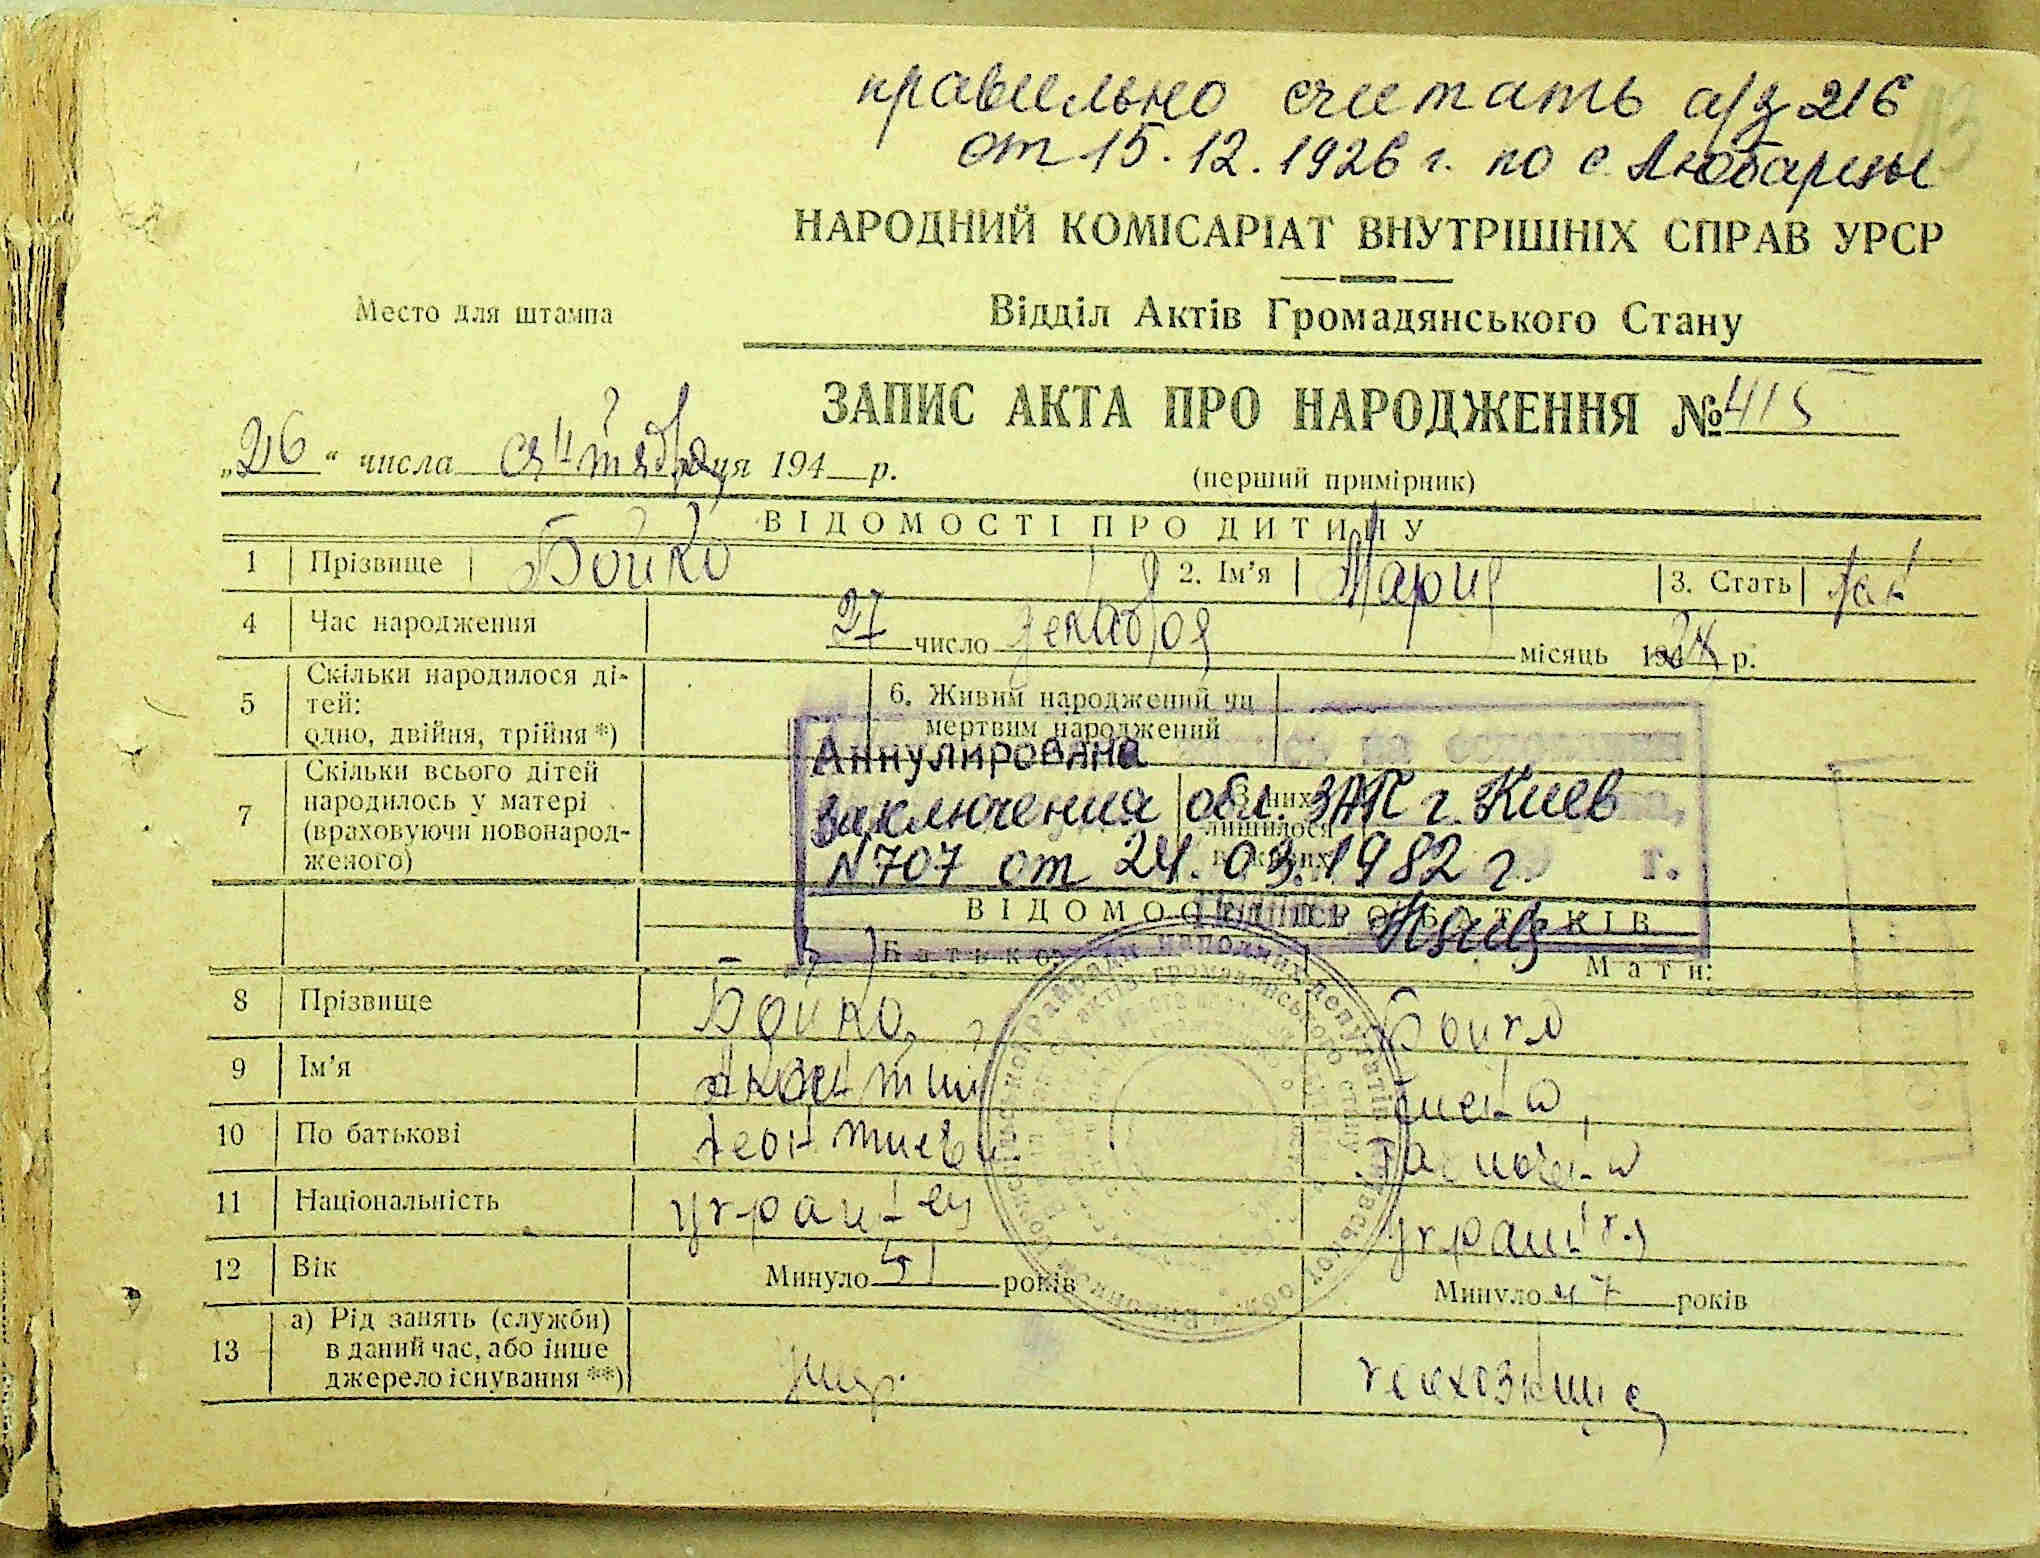 правильно считать а/з 216
от 15.12.1926 г. по с. Любарцы
НАРОДНИЙ КОМІСАРІАТ ВНУТРІШНІХ СПРАВ УРСР
Место для штампа
Відділ Актів Громадянського Стану
ЗАПИС АКТА ПРО НАРОДЖЕННЯ № 415
„26“ числа сентября 194 р.
(перший примірник)
ВІДОМОСТІ ПРО ДИТИНУ
1 Прізвище Бойко 2. Ім'я Мария 3. Стать
4 Час народження 27 число декабря місяць р.
5 Скільки народилося ді-
тей:
одно, двійня, трійня *)
6. Живим народжений чи
мертвим народжений
Аннулирована
заключения обл. ЗАГС г. Киев
N 707 от 24.03.1982 г.
7 Скільки всього дітей
народилось у матері
(враховуючи новонарод-
женого)
З них
лишилося
в живих
ВІДОМОСТІ ПРО БАТЬКІВ
Батько: Мати:
8 Прізвище Бойко Бойко
9 Ім'я
10 По батькові Леонтиев
11 Національність украінец украінка
12 Вік Минуло 51 років Минуло 47 років
13 а) Рід занять (служби)
в даний час, або інше
джерело існування **)
умер. колхозница